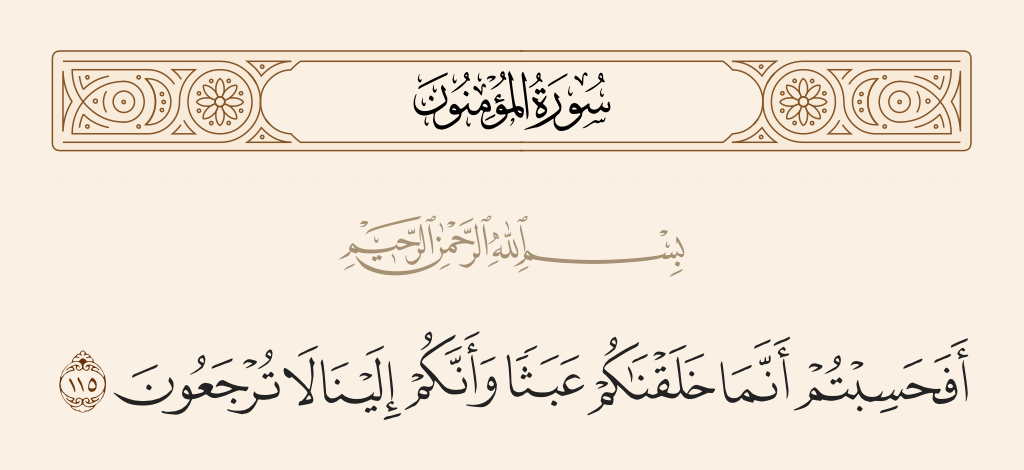 سُورَةُ المُؤْمِنُونَ
بِسْمِ ٱللَّهِ ٱلرَّحْمَٰنِ ٱلرَّحِيمِ
أَفَحَسِبْتُمْ أَنَّمَا خَلَقْنَٰكُمْ عَبَثًا وَأَنَّكُمْ إِلَيْنَا لَا تُرْجَعُونَ ١١٥